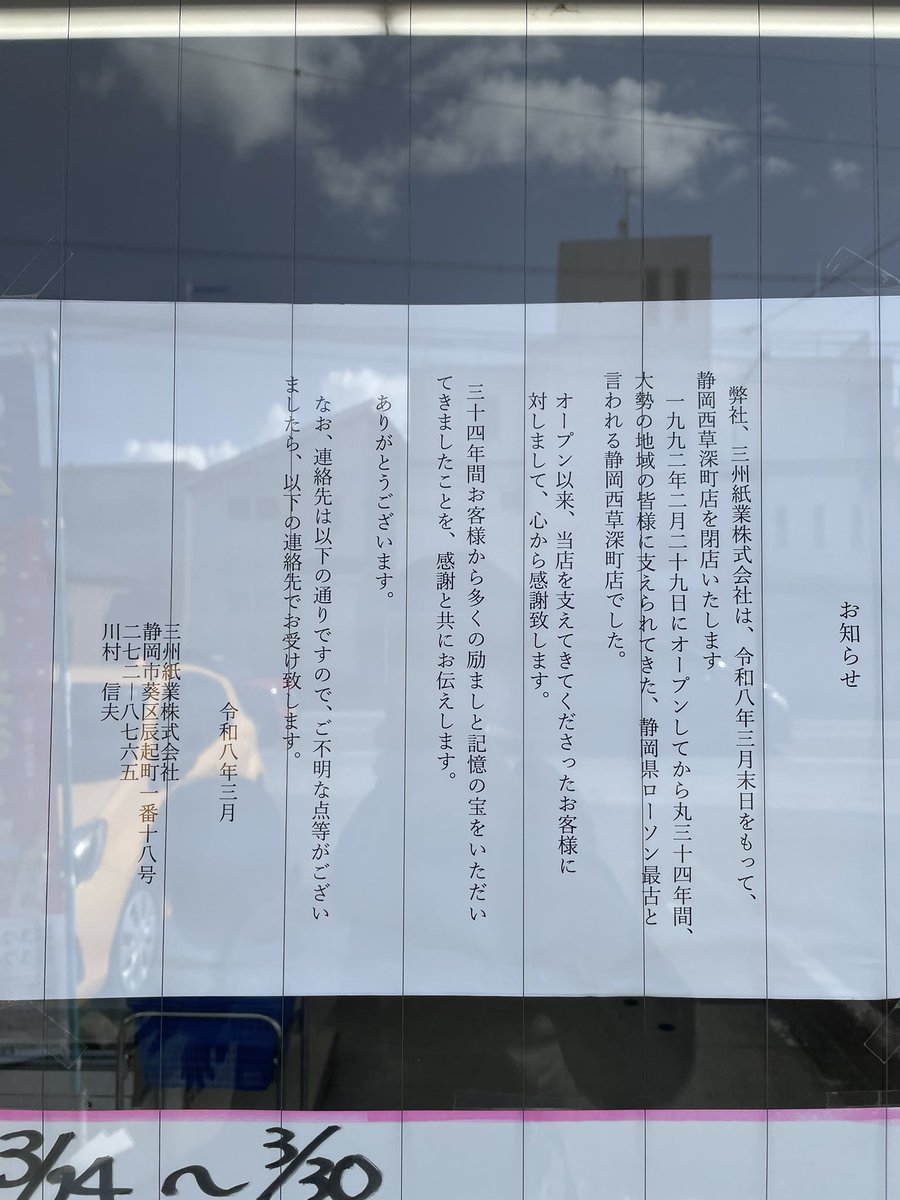 お知らせ
弊社、三州紙業株式会社は、令和八年三月末日をもって、
静岡西草深町店を閉店いたします
一九九二年二月二十九日にオープンしてから丸三十四年間、
大勢の地域の皆様に支えられてきた、静岡県ローソン最古と
言われる静岡西草深町店でした。
オープン以来、当店を支えてきてくださったお客様に
対しまして、心から感謝致します。
三十四年間お客様から多くの励ましと記憶の宝をいただい
てきましたことを、感謝と共にお伝えします。
ありがとうございます。
なお、連絡先は以下の通りですので、ご不明な点等がござい
ましたら、以下の連絡先でお受け致します。
令和八年三月
三州紙業株式会社
静岡市葵区辰起町一番十八号
二七二―八七六五
川村 信夫
3/24～3/30